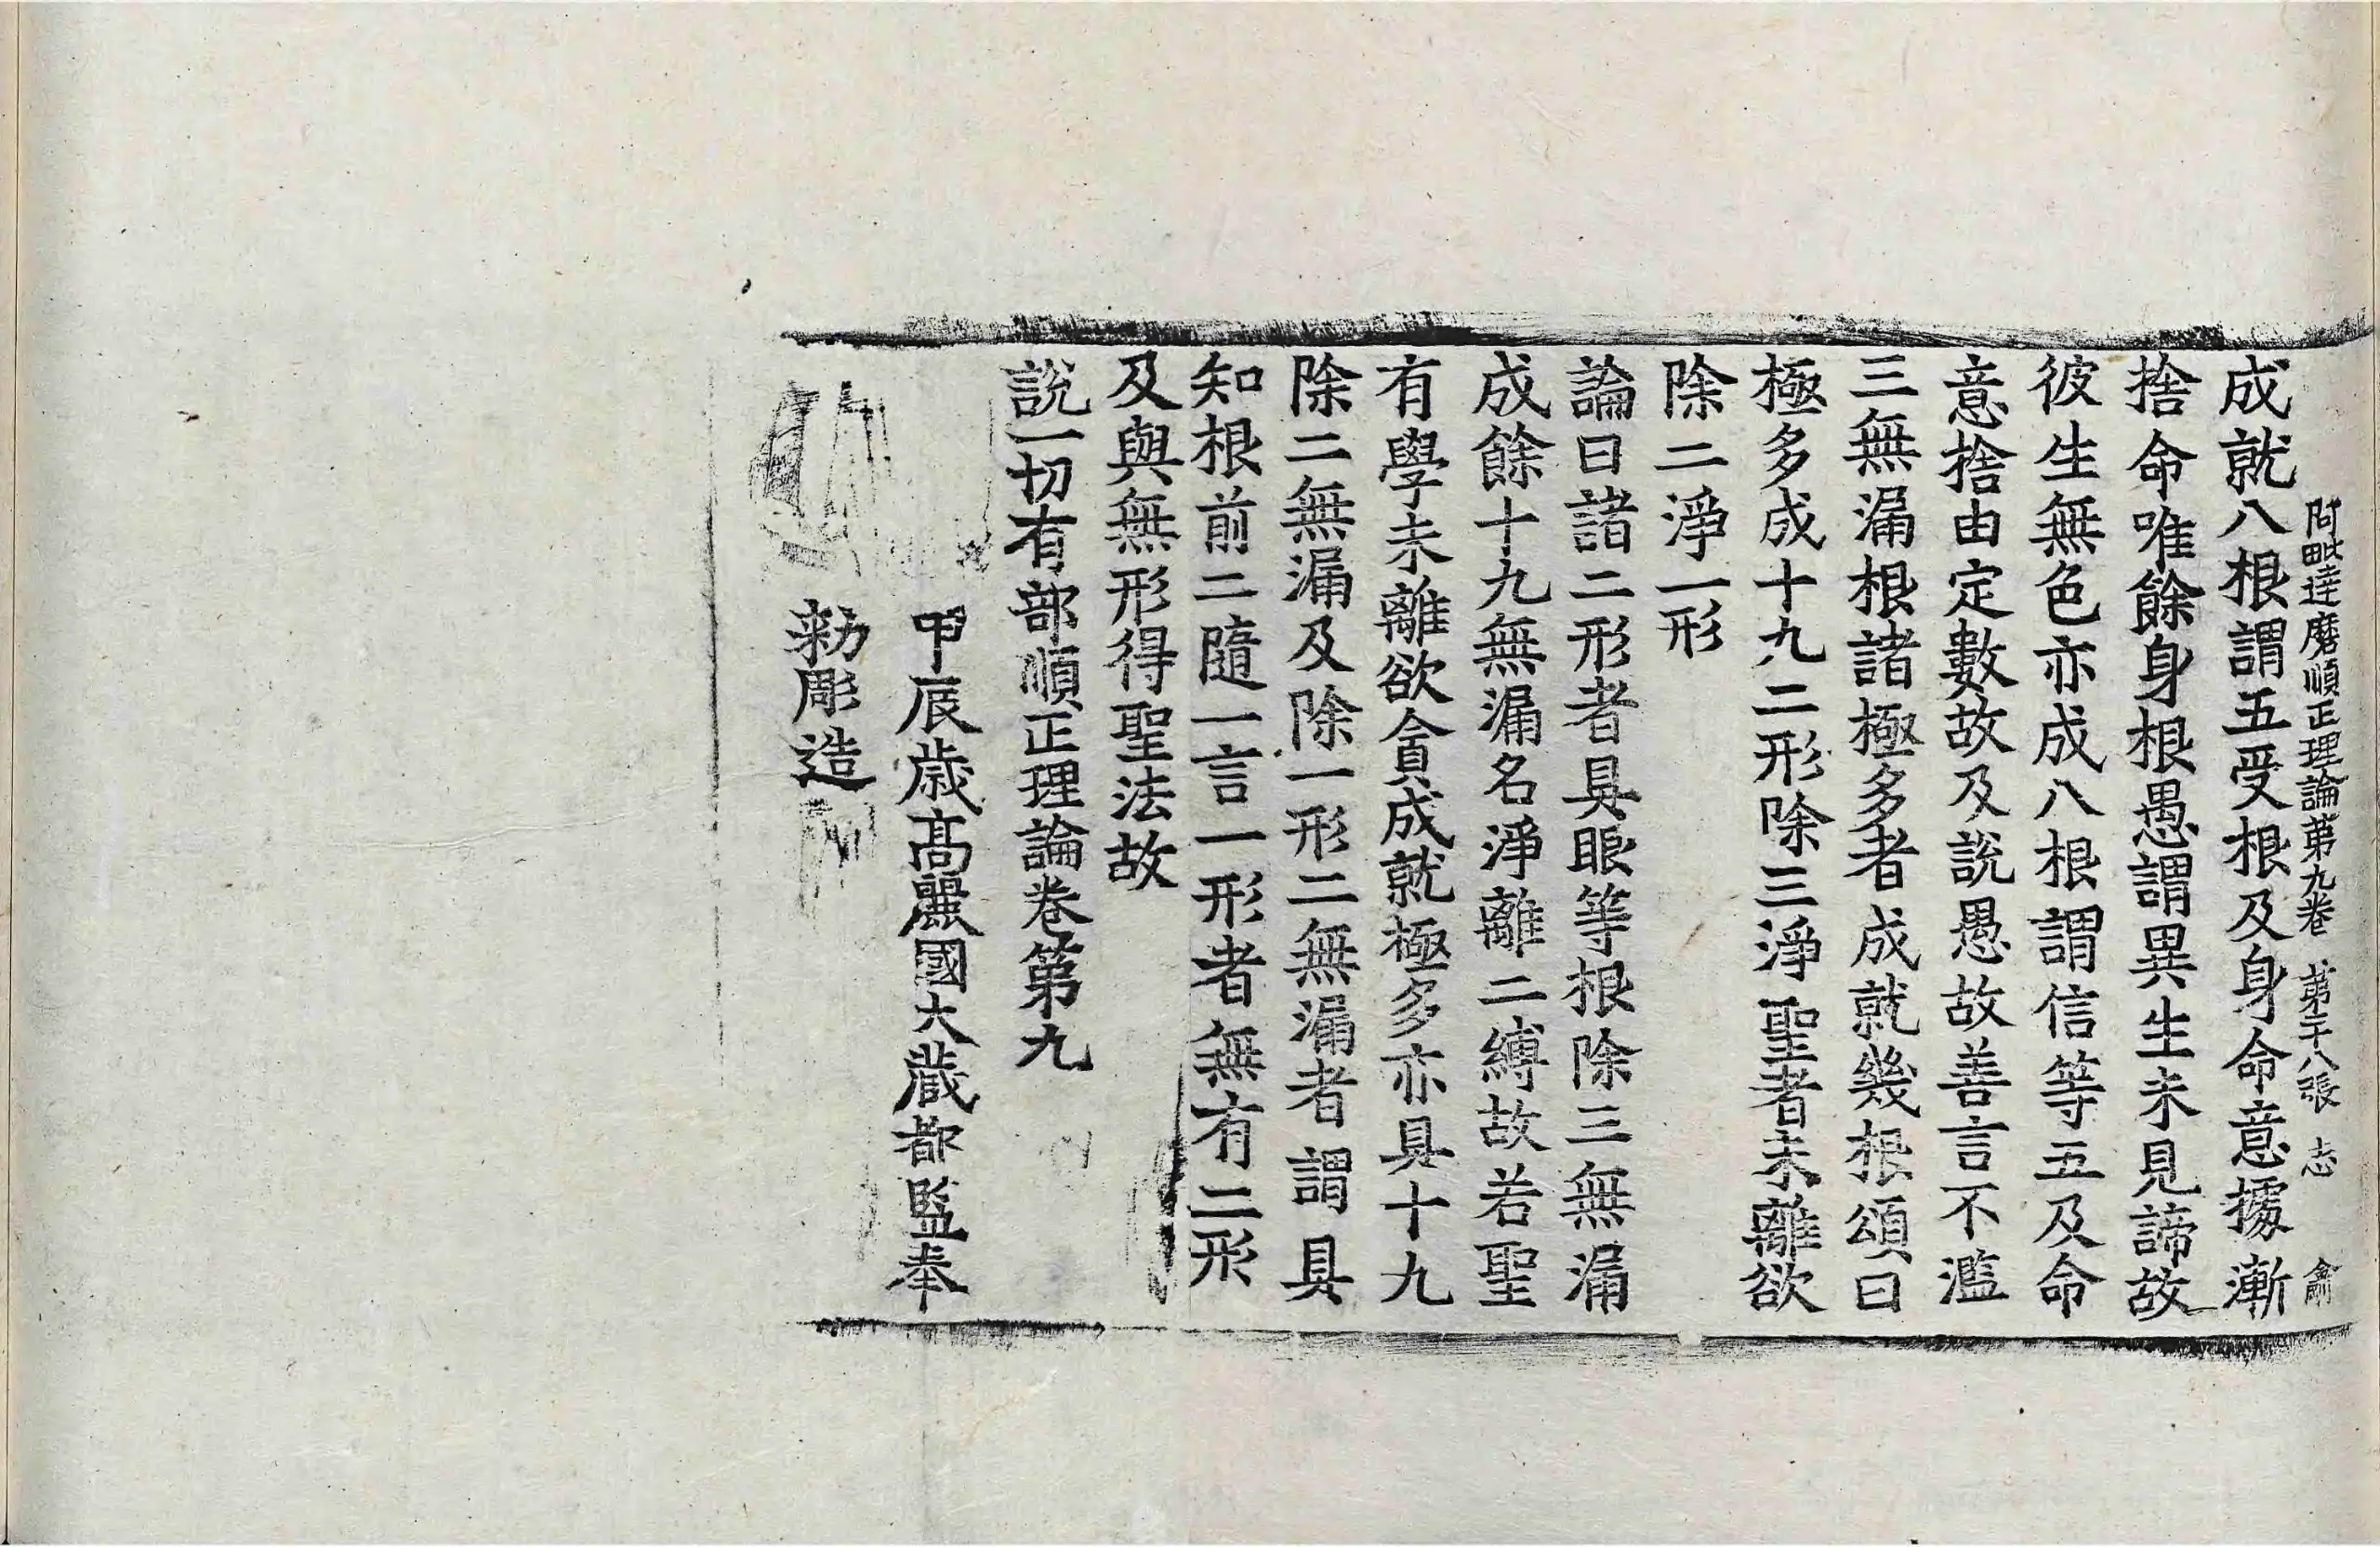 阿毗達磨順正理論第九卷 第二十八張 志 侖
成就八根謂五受根及身命意據漸
捨命唯餘身根愚謂異生未見諦故
彼生無色亦成八根謂信等五及命
意捨由定數故及說愚故善言不濫
三無漏根諸極多者成就幾根頌曰
極多成十九二形除三淨聖者未離欲
除二淨一形
論曰諸二形者具眼等根除三無漏
成餘十九無漏名淨離二縛故若聖
有學未離欲貪成就極多亦具十九
除二無漏及除一形二無漏者謂具
知根前二隨一言一形者無有二形
及與無形得聖法故
說一切有部順正理論卷第九
甲辰歲高麗國大藏都監奉
勅彫造